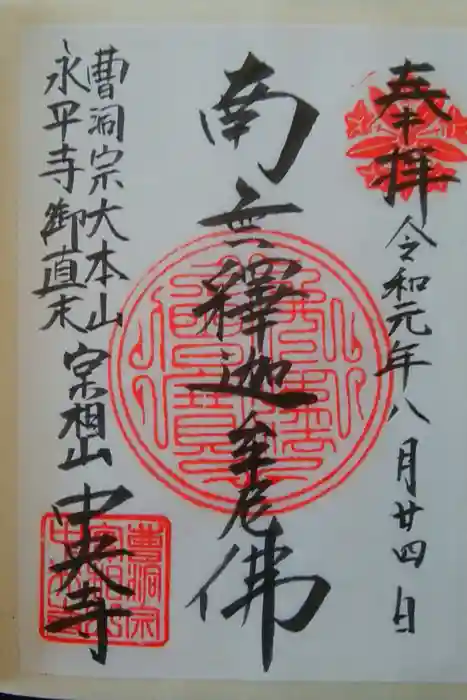 奉拝
令和元年八月廿四日
南無釋迦牟尼佛
曹洞宗大本山
永平寺御直末
宗相山
中央寺